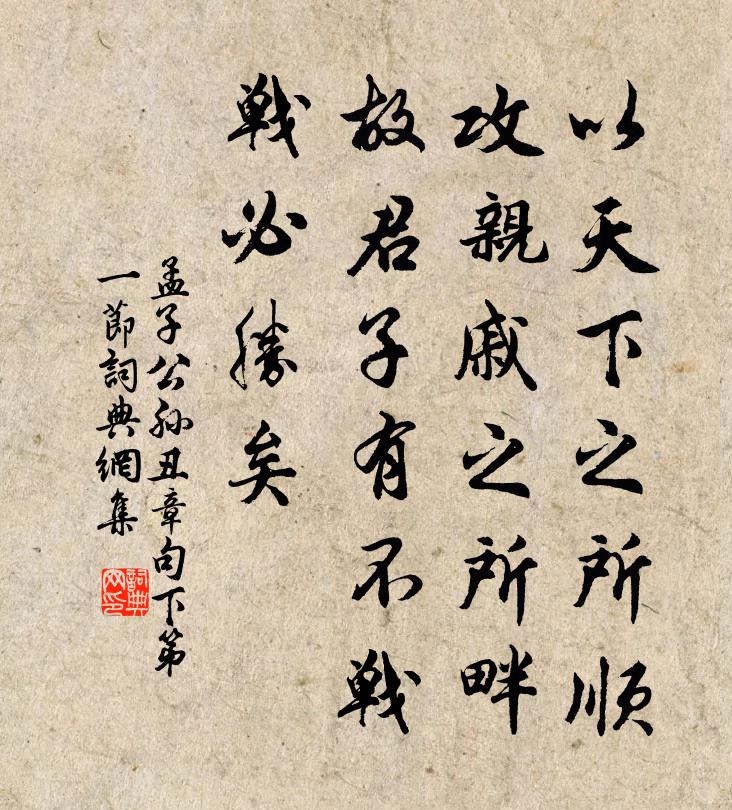 以天下之所順
攻親戚之所畔
故君子有不戦
戦必勝矣
孟子公孙丑章句下第
一節詞典網集
詞典
网印